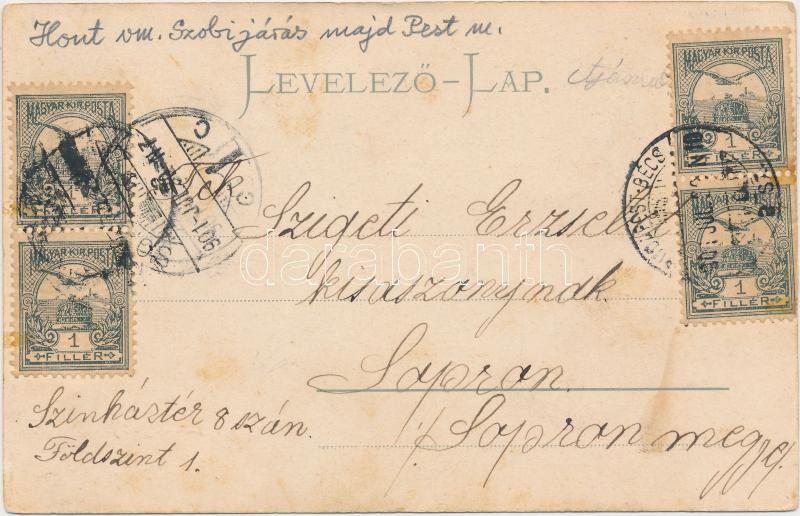 Hont vm. Szobi járás majd Pest m.
LEVELEZŐ-LAP.
MAGYAR KIR. POSTA
1
FILLÉR
MAGYAR KIR. POSTA
1
FILLÉR
MAGYAR KIR. POSTA
1
FILLÉR
MAGYAR KIR. POSTA
1
FILLÉR
Tek.
Szigeti Erzsébet
kisaszonynak.
Sopron.
Szinháztér 8 szán.
Földszint 1.
Sopron megye.
darabanth